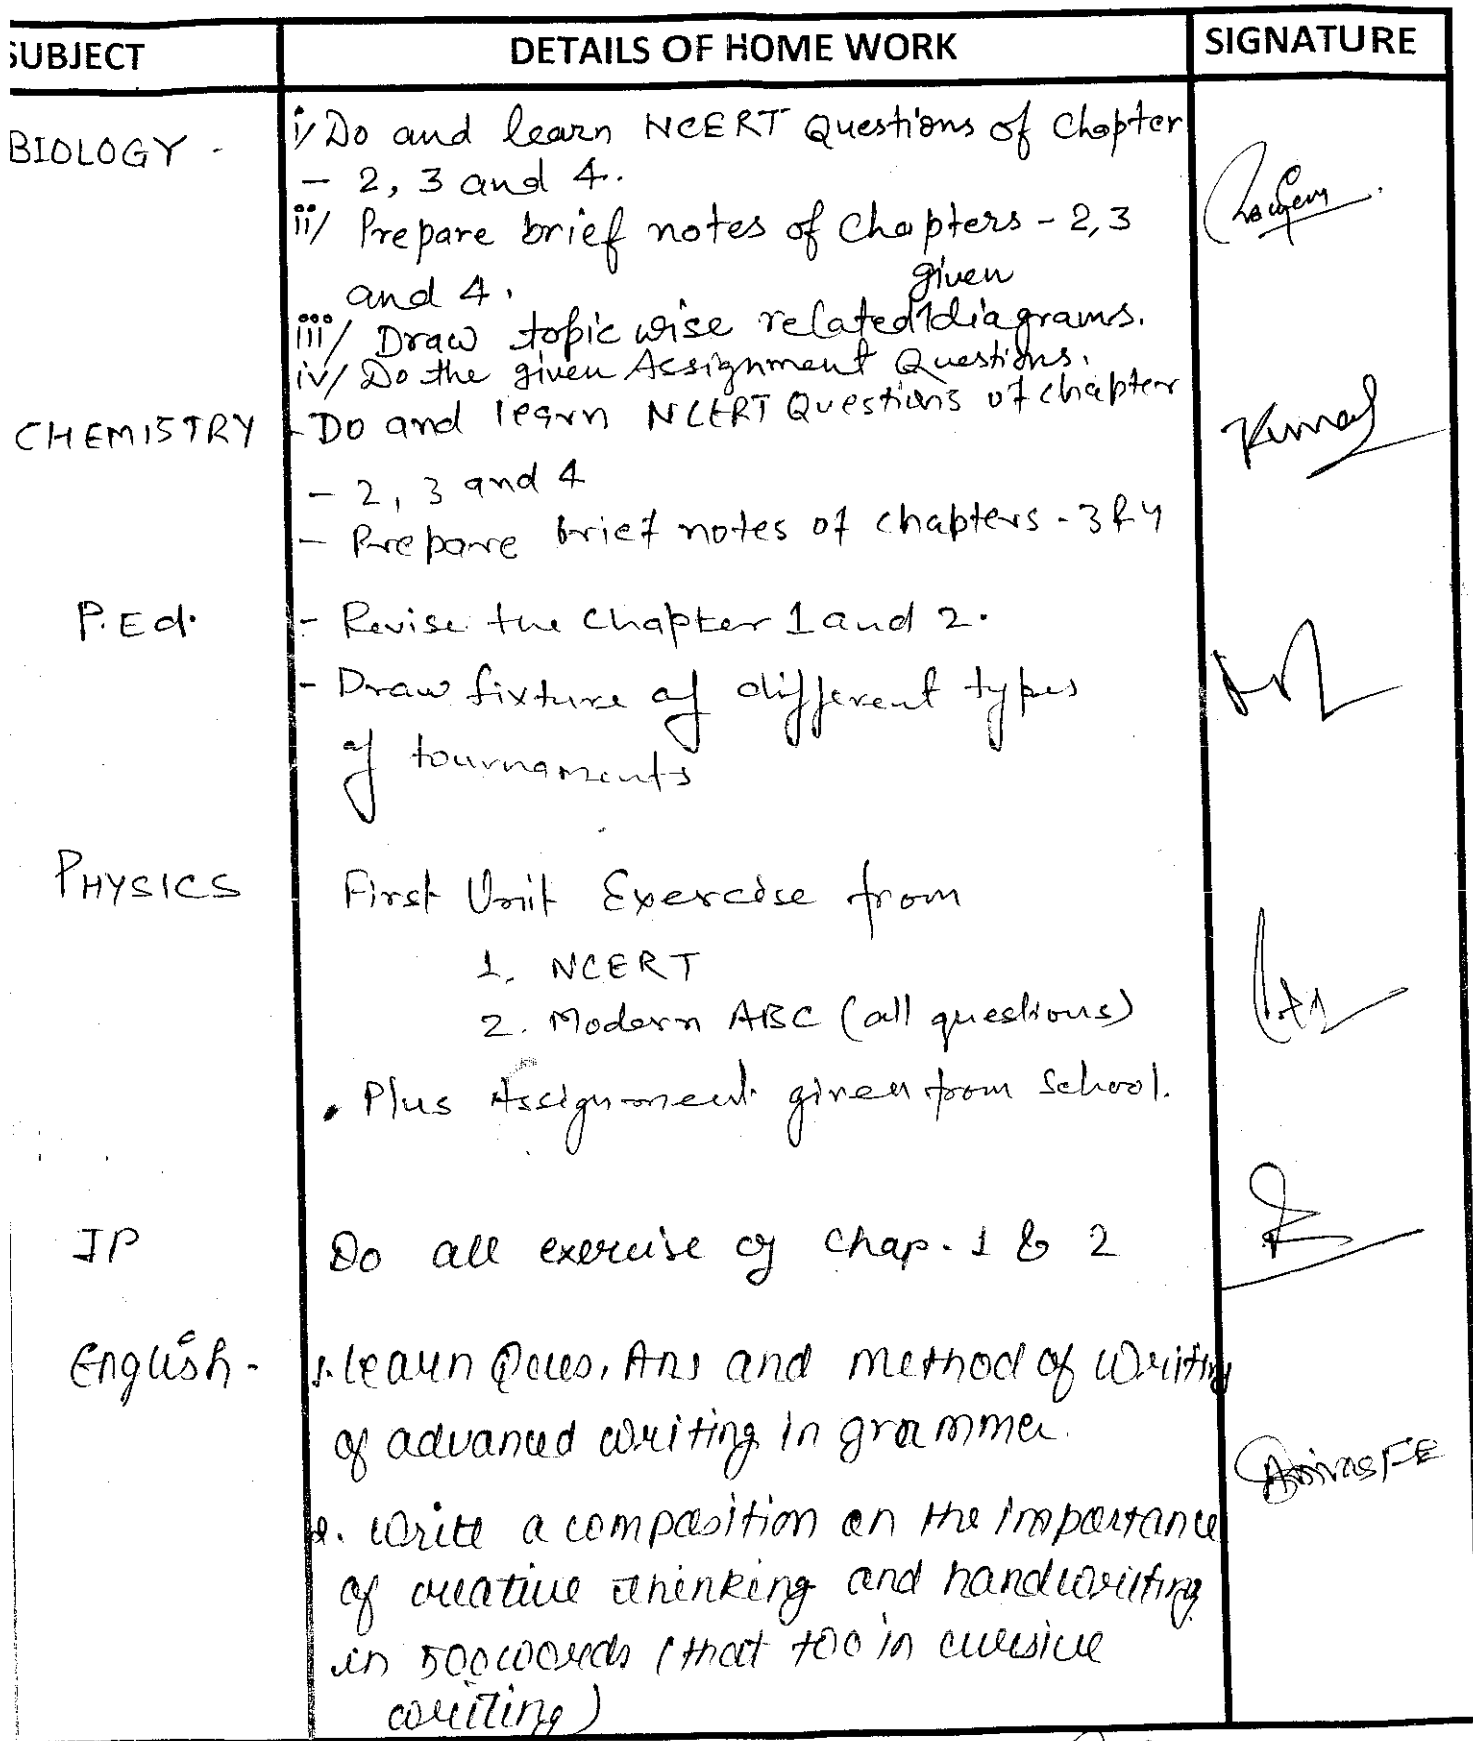 SUBJECT DETAILS OF HOME WORK SIGNATURE
BIOLOGY - i/ Do and learn NCERT Questions of Chapter
- 2, 3 and 4.
ii/ Prepare brief notes of Chapters - 2, 3
and 4.
given
iii/ Draw topic wise related diagrams.
iv/ Do the given Assignment Questions.
CHEMISTRY - Do and learn NCERT Questions of chapter
- 2, 3 and 4
- Prepare brief notes of chapters - 3 & 4
P.Ed. - Revise the Chapter 1 and 2.
- Draw fixture of different types
of tournaments
PHYSICS First Unit Exercise from
1. NCERT
2. Modern ABC (all questions)
• Plus Assignment given from School.
IP Do all exercise of Chap. 1 & 2
English - 1. Learn Ques, Ans and method of Writing
of advanced writing in grammer.
2. Write a composition on the importance
of creative thinking and handwriting
in 500 words (that too in cursive
writing)